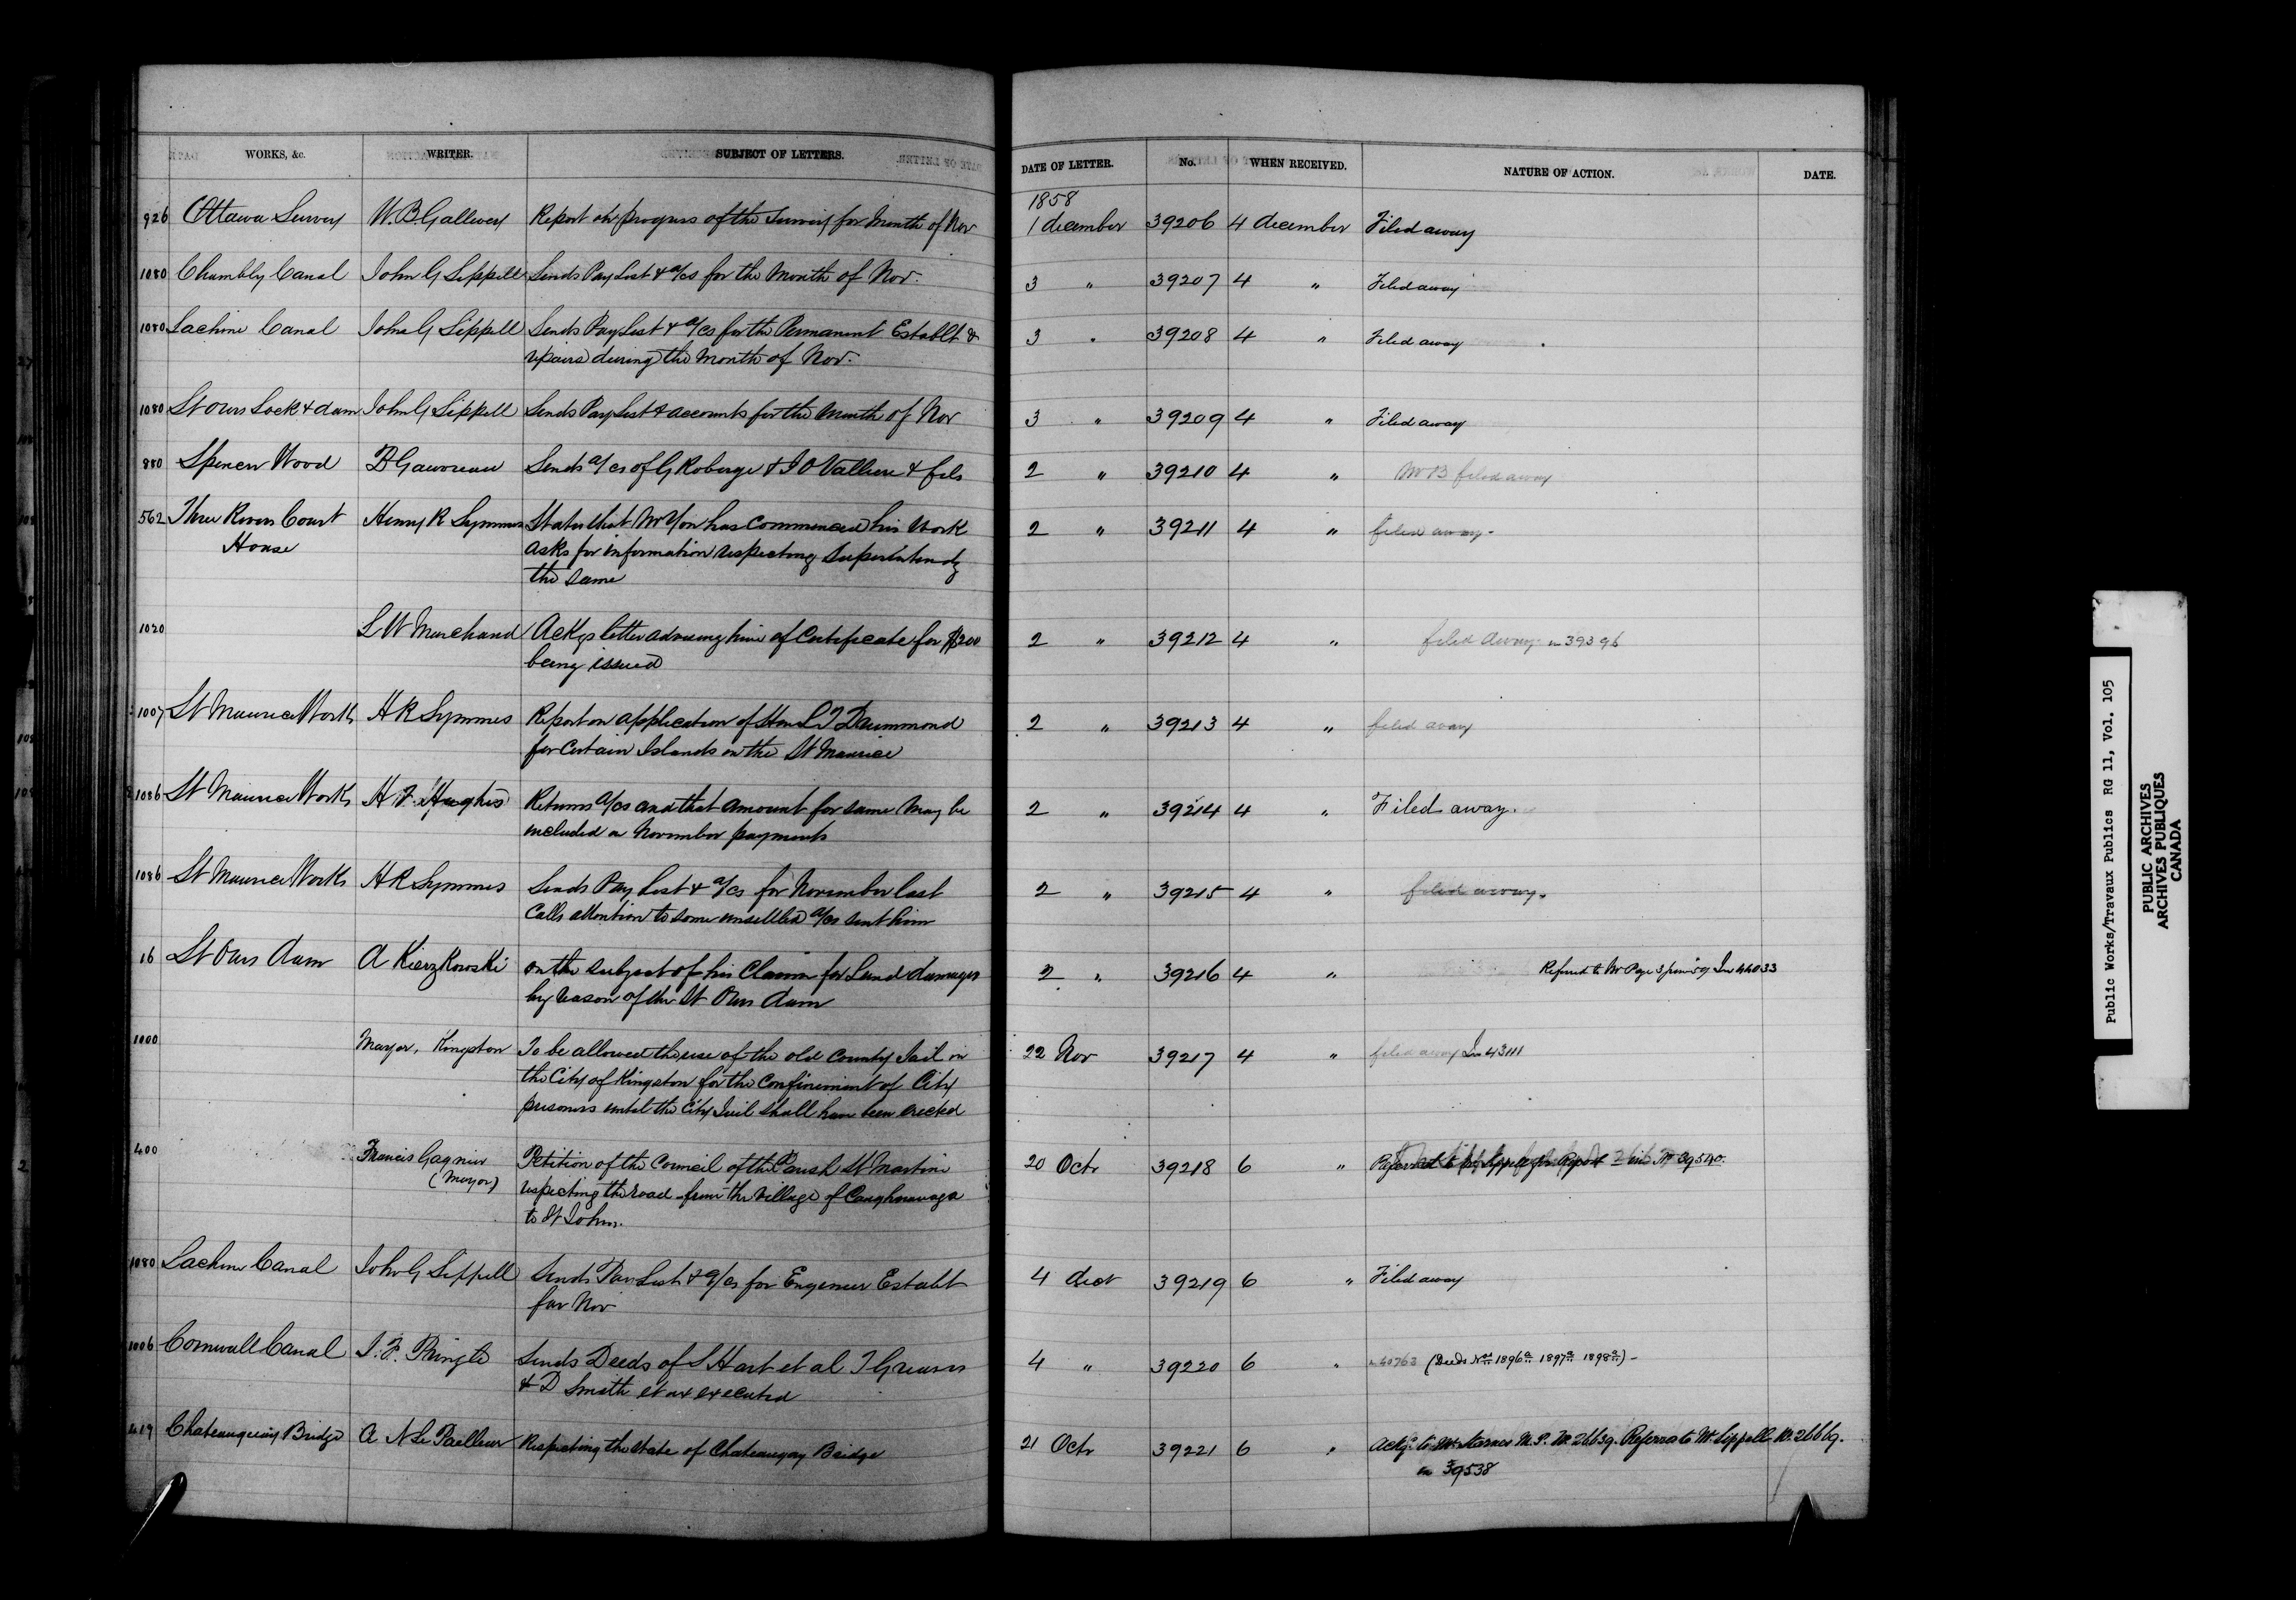 WORKS, &c. WRITER. SUBJECT OF LETTERS. DATE OF LETTER. No. WHEN RECEIVED. NATURE OF ACTION. DATE.
1858
926 Ottawa Survey W. B. Gallwey Report on progress of the Survey for Month of Nov 1 december 39206 4 december Filed away
1080 Chambly Canal John G Sippell Sends Pay List & a/cs for the Month of Nov. 3 " 39207 4 " Filed away
1080 Lachine Canal John G Sippell Sends Pay List & a/cs for the Permanent Establt & 3 " 39208 4 " Filed away
repairs during the Month of Nov.
1080 St Ours Lock & dam John G Sippell Sends Pay List & accounts for the Month of Nov 3 " 39209 4 " Filed away
880 Spencer Wood P Gauvreau Sends a/cs of G Roberge & J O Valliere & fils 2 " 39210 4 " filed away
562 Three Rivers Court Henry R Symmes States that Mr Yon has commenced his Work 2 " 39211 4 " filed away.
House asks for information respecting Superintendg
the same
1020 L W Marchand Ackgs letter advising him of Certificate for $200 2 " 39212 4 " filed away in 39396
being issued
1007 St Maurice Works H R Symmes Report on application of Hon L T Drummond 2 " 39213 4 " filed away
for Certain Islands on the St Maurice
1086 St Maurice Works H F. Hughes Returns a/cs and that amount for same May be 2 " 39214 4 " Filed away.
included in November payments
1086 St Maurice Works H R Symmes Sends Pay List & a/cs for November last 2 " 39215 4 " filed away.
Calls attention to some unsettled a/cs sent him
16 St Ours dam A Kierzkowski on the subject of his Claim for Land damages 2 " 39216 4 " Referred to Mr Page In 44033
by reason of the St Ours dam
1000 Mayor, Kingston To be allowed the use of the old County Jail in 22 Nov 39217 4 " filed away In 43111
the City of Kingston for the Confinement of City
prisoners until the City Jail shall have been erected
400 Francis Gagnier Petition of the Council of the Parish St Martine 20 Octr 39218 6 " Referred to Mr Sippell for Report in No 39540.
(Mayor) respecting the road from the Village of Caughnawaga
to St Johns.
1080 Lachine Canal John G Sippell Sends Pay List & a/cs for Engineer Establt 4 decr 39219 6 " Filed away
for Nov
1006 Cornwall Canal J. F. Pringle Sends Deeds of S Hart et al T Greaves 4 " 39220 6 " in 40763 (Deeds Nos 1896a 1897a 1898a)
& D Smith et ux executed
419 Chateauguay Bridge A N Le Pailleur Respecting the State of Chateaugay Bridge 21 Octr 39221 6 " Ackgd to Mr Starnes M.P. No. 26639. Referred to Mr Sippell No. 26669.
in 39538
Public Works/Travaux Publics RG 11, Vol. 105
PUBLIC ARCHIVES
ARCHIVES PUBLIQUES
CANADA